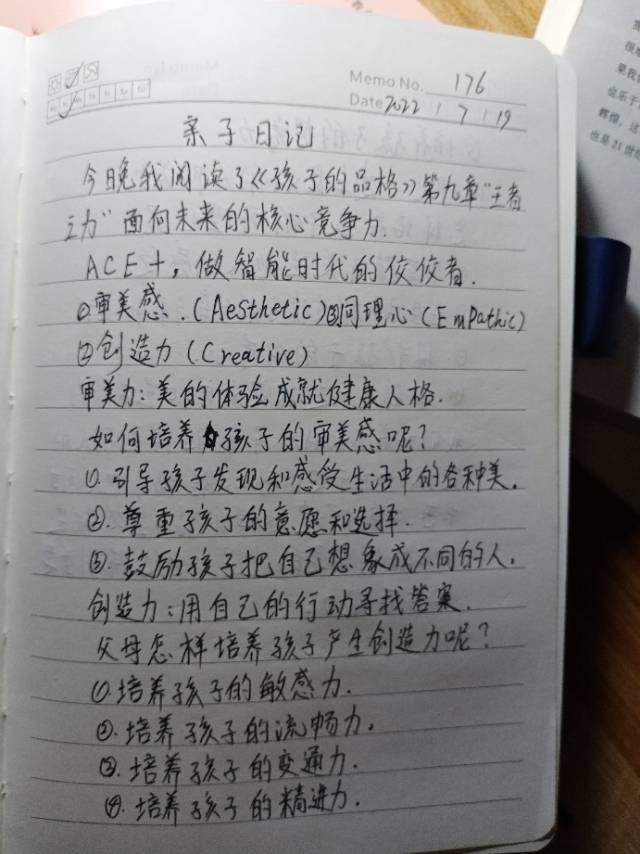 Memo No. 176
Date 2022 / 7 / 19
亲子日记
今晚我阅读了《孩子的品格》第九章"王者
之力"面向未来的核心竞争力.
ACE+，做智能时代的佼佼者.
①审美感.(Aesthetic)③同理心(EmPathic)
②创造力(Creative)
审美力:美的体验成就健康人格.
如何培养孩子的审美感呢?
①.引导孩子发现和感受生活中的各种美.
②.尊重孩子的意愿和选择.
③.鼓励孩子把自己想象成不同的人.
创造力:用自己的行动寻找答案.
父母怎样培养孩子产生创造力呢?
①.培养孩子的敏感力.
②.培养孩子的流畅力.
③.培养孩子的变通力.
④.培养孩子的精进力.